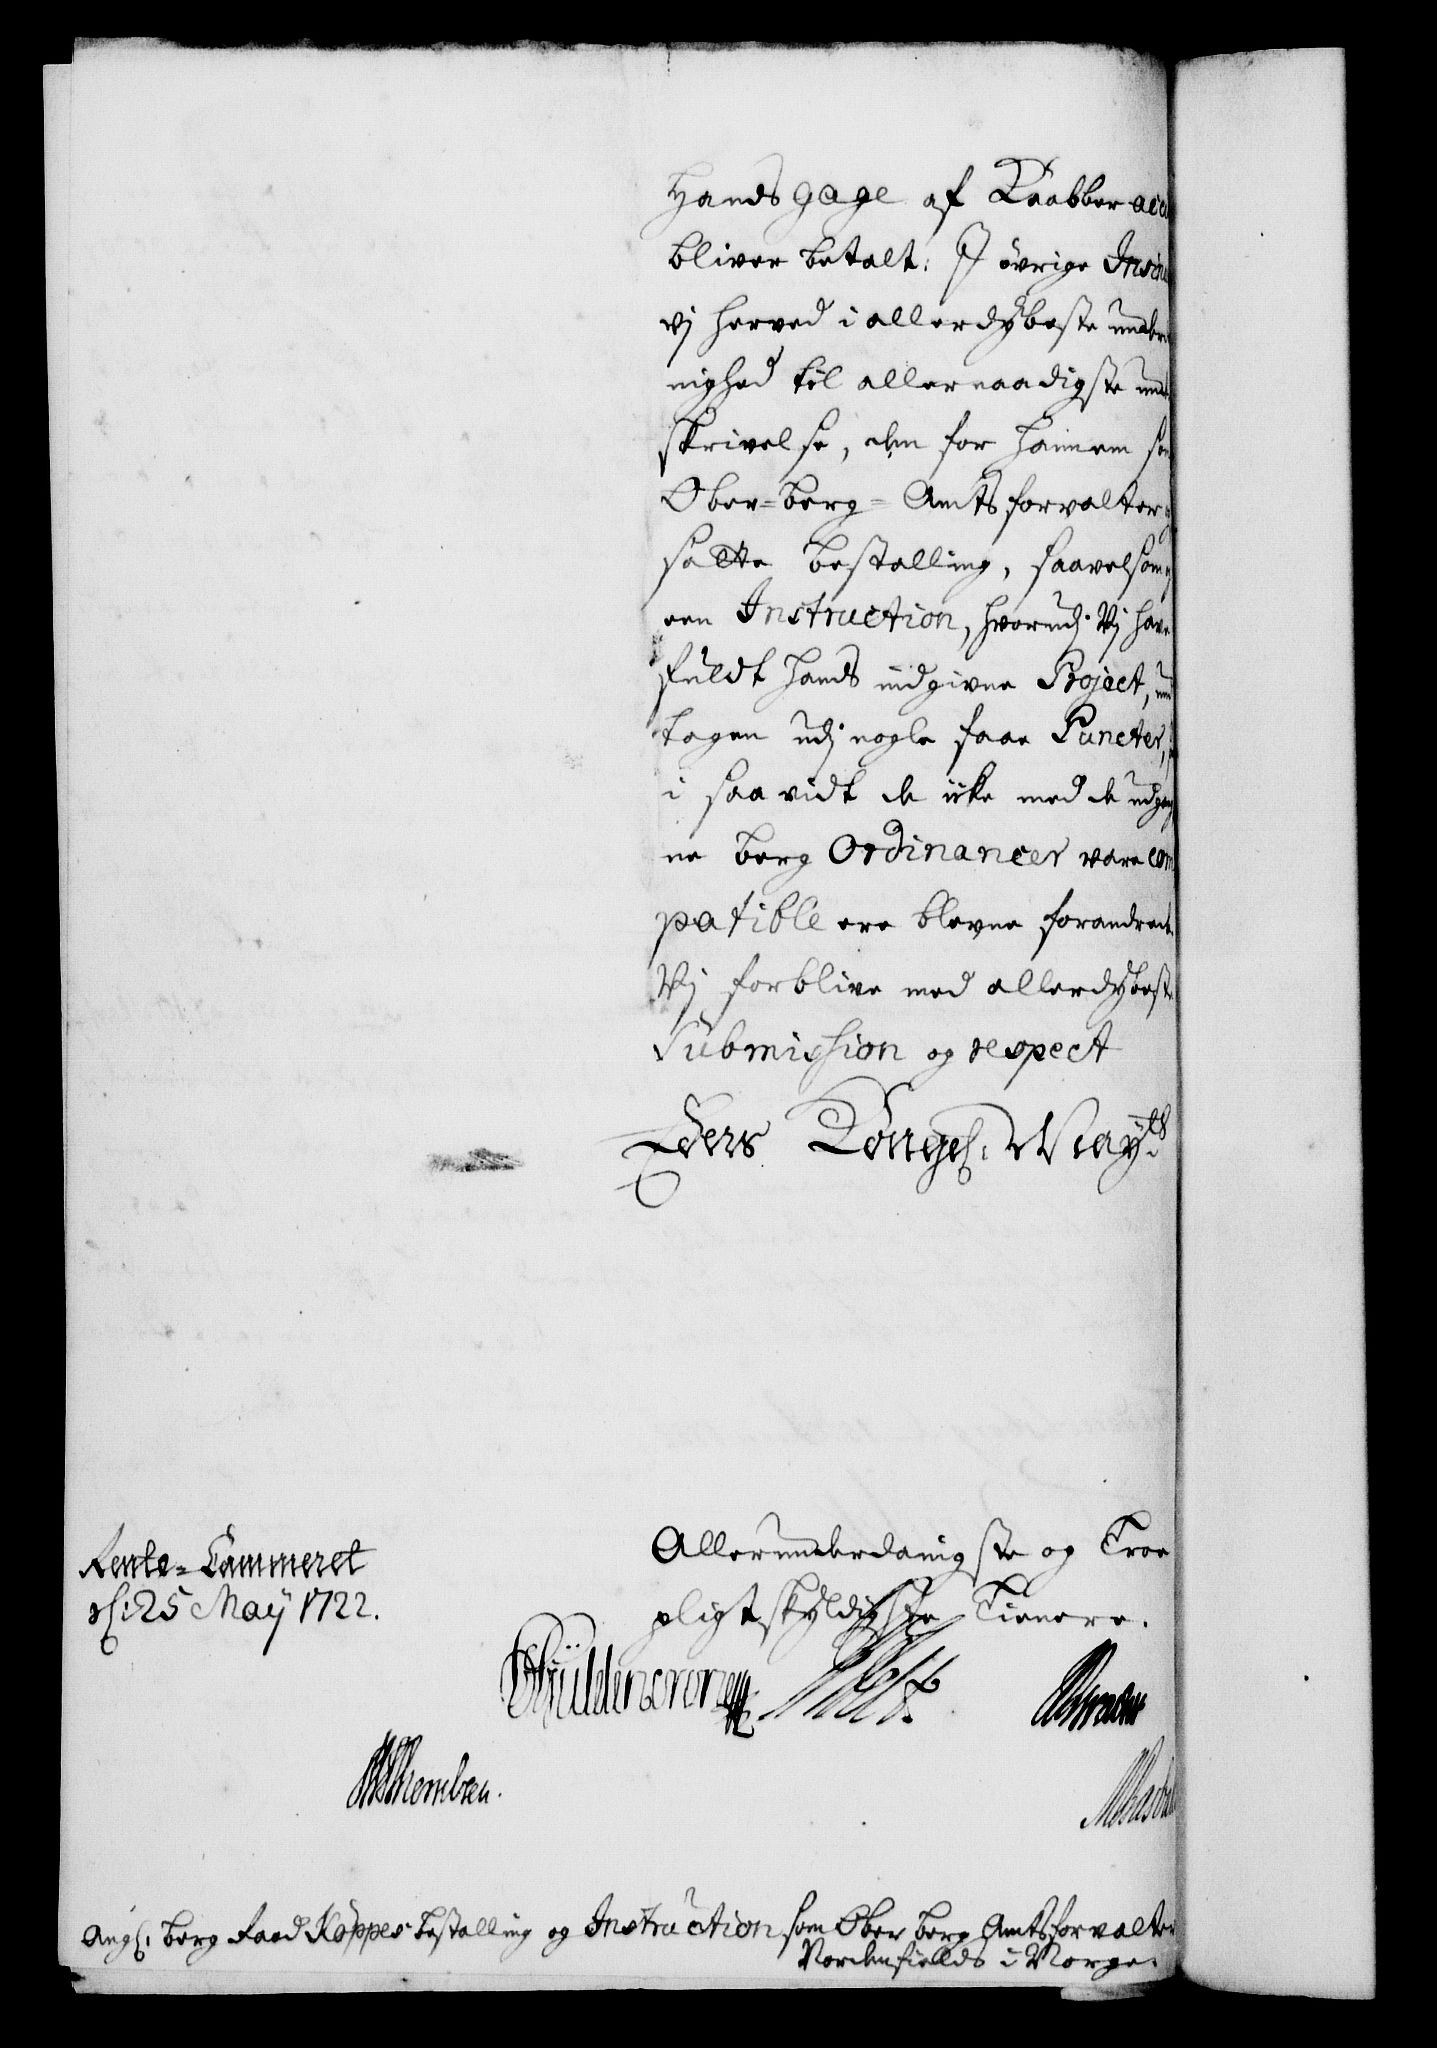 Hands gage af Kaabber
bliver betalt: J övrige
vj herved i allerdybeste under
nighed til allernaadigste und
skrivelse, den for hannem
Ober=berg=Amtsforvalter
satte bestalling, saavelsom
een Instruction, hvorudj Vj have
fuldt hands indgivne Project,
tagen udj nogle faae Puncter,
i saa vidt de icke med de udgag
ne berg Ordinancer vare com
patible ere blevne forandrede
Vj forblive med allerdybeste
Submission og respect
Eders Kongel: Mayts
Allerunderdanigste og Troe
pligtskyldigste Tienere.
Rente=Cammeret
d: 25 Maÿ 1722.
Gÿldencrone
Ang: berg Raad Köppes bestalling og Instruction som Ober berg Amtsforvalter
Nordenfields i Norge.